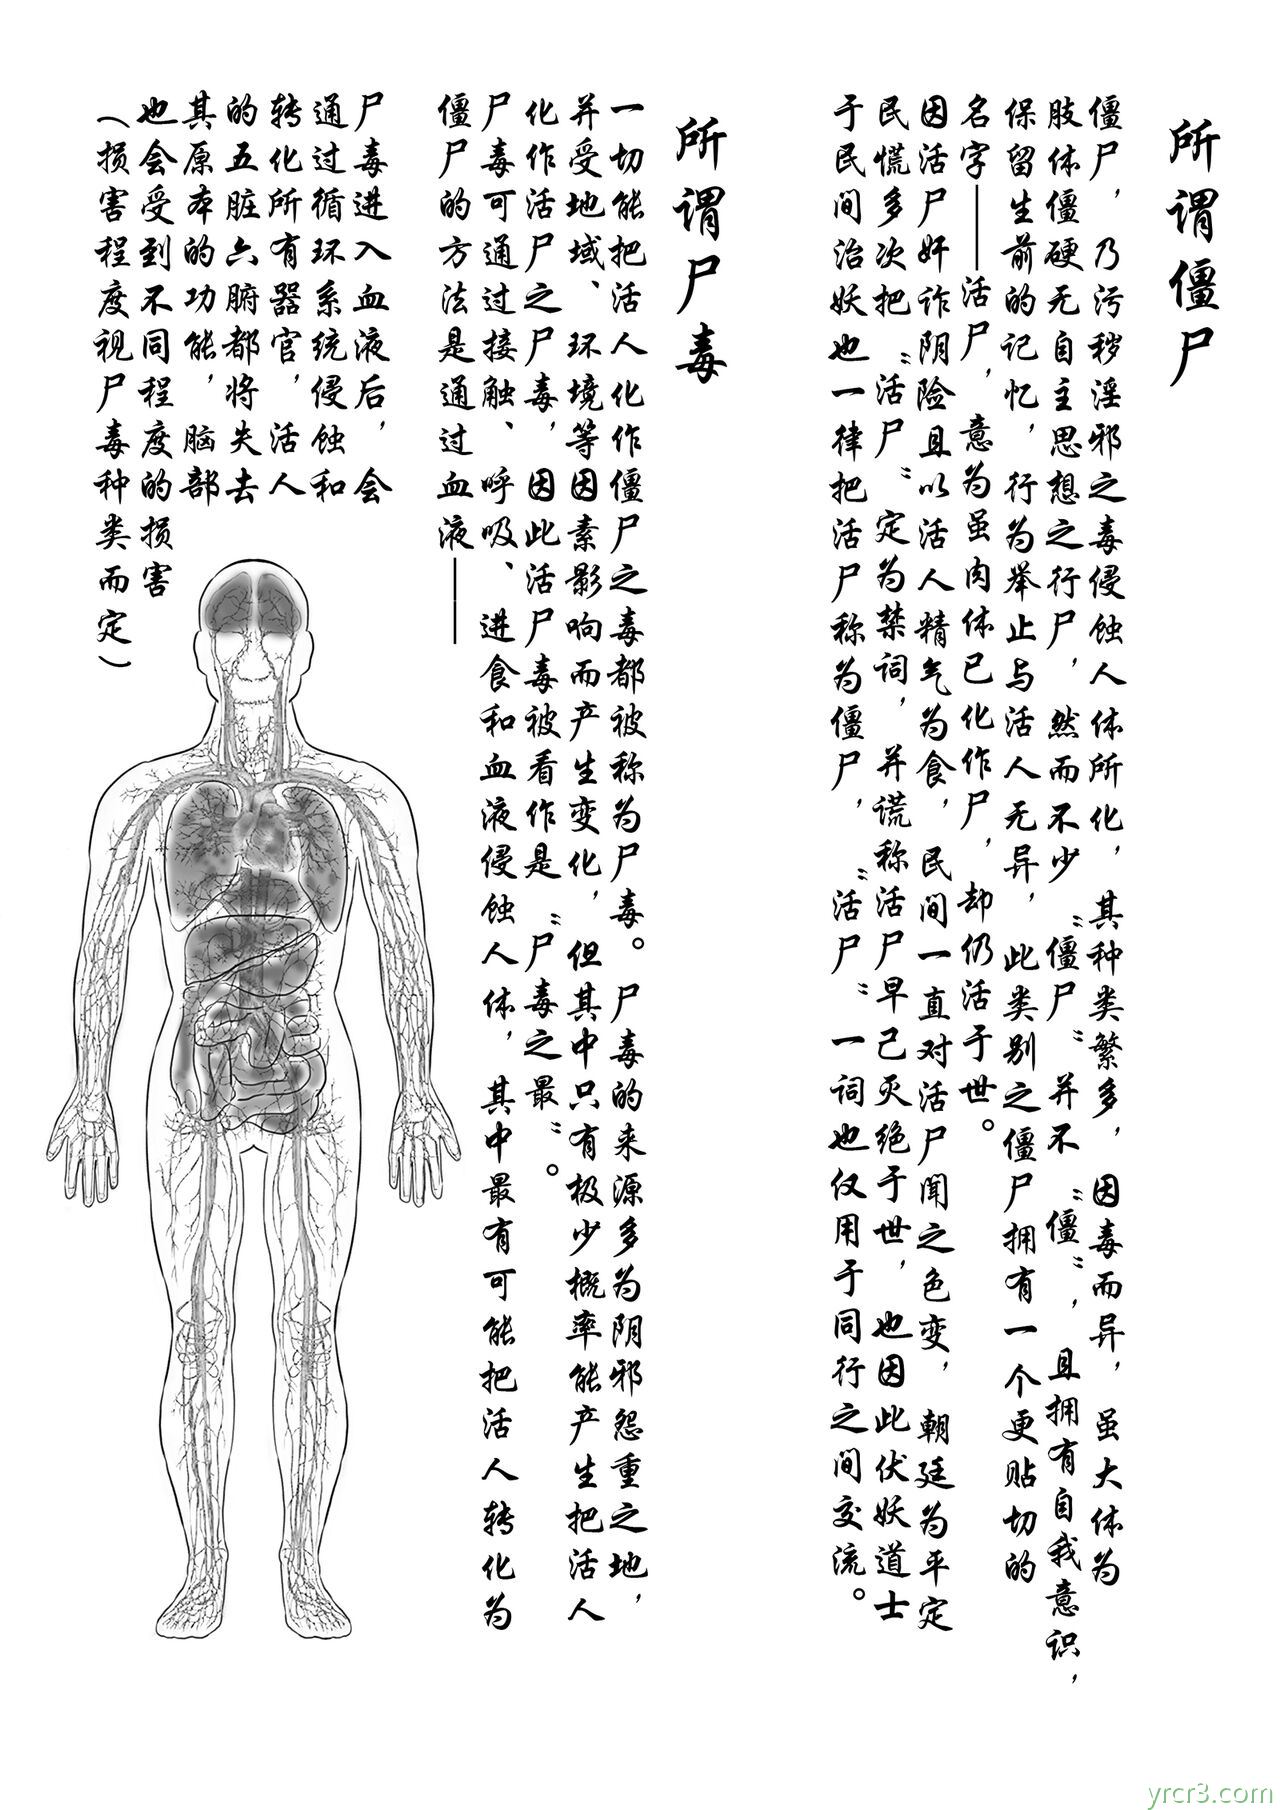 所谓僵尸
僵尸，乃污秽淫邪之毒侵蚀人体所化，其种类繁多，因毒而异，虽大体为
肢体僵硬无自主思想之行尸，然而不少“僵尸”并不“僵”，且拥有自我意识，
保留生前的记忆，行为举止与活人无异，此类别之僵尸拥有一个更贴切的
名字——活尸，意为虽肉体已化作尸，却仍活于世。
因活尸奸诈阴险且以活人精气为食，民间一直对活尸闻之色变，朝廷为平定
民慌多次把“活尸”定为禁词，并谎称活尸早已灭绝于世，也因此伏妖道士
于民间治妖也一律把活尸称为僵尸，“活尸”一词也仅用于同行之间交流。
所谓尸毒
一切能把活人化作僵尸之毒都被称为尸毒。尸毒的来源多为阴邪怨重之地，
并受地域、环境等因素影响而产生变化，但其中只有极少概率能产生把活人
化作活尸之尸毒，因此活尸毒被看作是“尸毒之最”。
尸毒可通过接触、呼吸、进食和血液侵蚀人体，其中最有可能把活人转化为
僵尸的方法是通过血液——
尸毒进入血液后，会
通过循环系统侵蚀和
转化所有器官，活人
的五脏六腑都将失去
其原本的功能，脑部
也会受到不同程度的损害
（损害程度视尸毒种类而定）
yrcr3.com